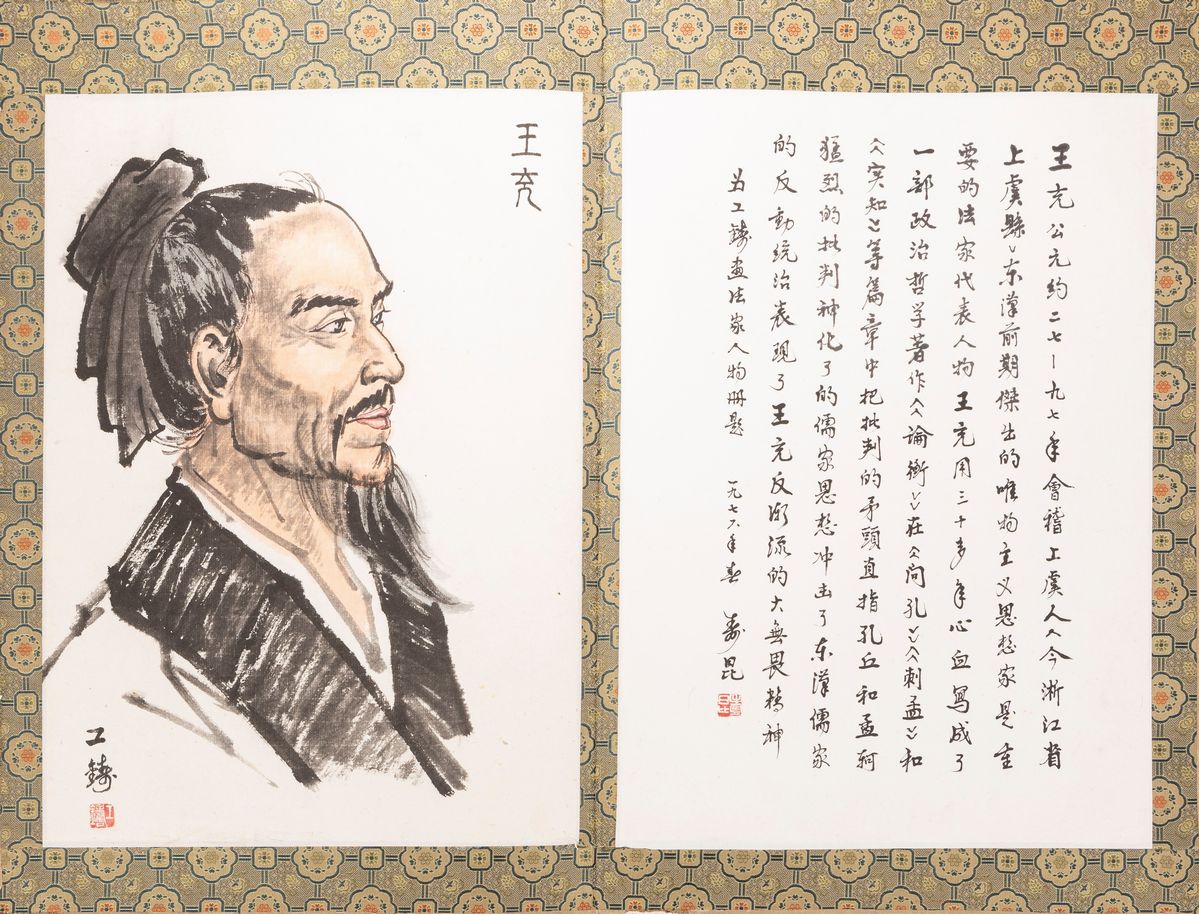 王充
工鑄
王充公元约二七—九七年會稽上虞人〈今浙江省
上虞縣〉东漢前期傑出的唯物主义思想家是重
要的法家代表人物王充用三十多年心血寫成了
一部政治哲学著作《論衡》在《问孔》《刺孟》和
《实知》等篇章中把批判的矛頭直指孔丘和孟轲
猛烈的批判神化了的儒家思想冲击了东漢儒家
的反動统治表現了王充反潮流的大無畏精神
为工鑄画法家人物册题 一九七六年春 壽昆